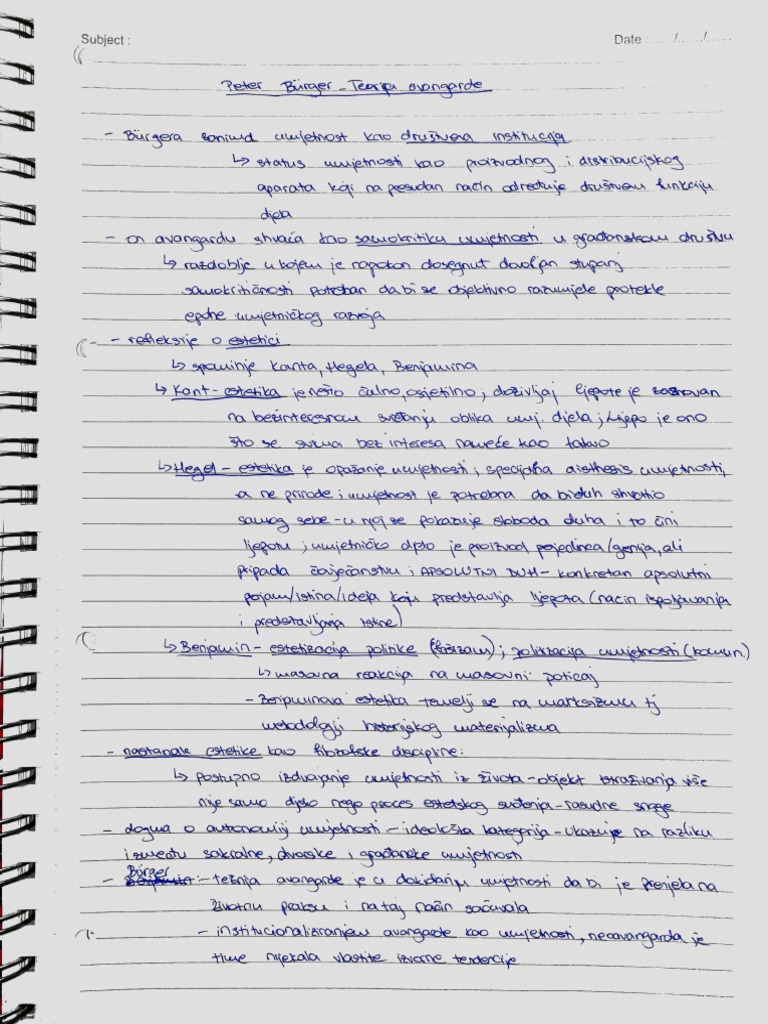 Subject :
Date : ....../....../......
Peter Bürger - Teorija avangarde
- Bürgera zanima umjetnost kao društvena institucija
↳ status umjetnosti kao proizvodnog i distribucijskog
aparata koji na presudan način određuje društvenu funkciju
djela
- on avangardu shvaća kao samokritiku umjetnosti u građanskom društvu
↳ razdoblje u kojem je napokon dosegnut dovoljan stupanj
samokritičnosti potreban da bi se objektivno razumjele protekle
epohe umjetničkog razvoja
- refleksije o estetici
↳ spominje Kanta, Hegela, Benjamina
↳ Kant - estetika je nešto čulno, osjetilno; doživljaj ljepote je zasnovan
na bezinteresnom sviđanju oblika umj. djela; Lijepo je ono
što se svima bez interesa nameće kao takvo
↳ Hegel - estetika je opažanje umjetnosti; specijalna aisthesis umjetnosti,
a ne prirode; umjetnost je potrebna da bi duh shvatio
samog sebe - u njoj se pokazuje sloboda duha i to čini
ljepotu; umjetničko djelo je proizvod pojedinca/genija, ali
pripada čovječanstvu; APSOLUTNI DUH - konkretan apsolutni
pojam/istina/ideja koju predstavlja ljepota (način ispoljavanja
i predstavljanja istine)
↳ Benjamin - estetizacija politike (fašizam); politizacija umjetnosti (komun.)
↳ masovna reakcija na masovni poticaj
- Benjaminova estetika temelji se na marksizmu tj
metodologiji historijskog materijalizma
- nastanak estetike kao filozofske discipline:
↳ postupno izdvajanje umjetnosti iz života - objekt istraživanja više
nije samo djelo nego proces estetskog suđenja - rasudne snage
- dogma o autonomiji umjetnosti - ideološka kategorija - ukazuje na razliku
između sakralne, dvorske i građanske umjetnosti
- Bürger: - težnja avangarde je u dokidanju umjetnosti da bi je prenijela na
životnu praksu i na taj način sačuvala
- institucionaliziranjem avangarde kao umjetnosti, neoavangarda je
time nijekala vlastite izvorne tendencije